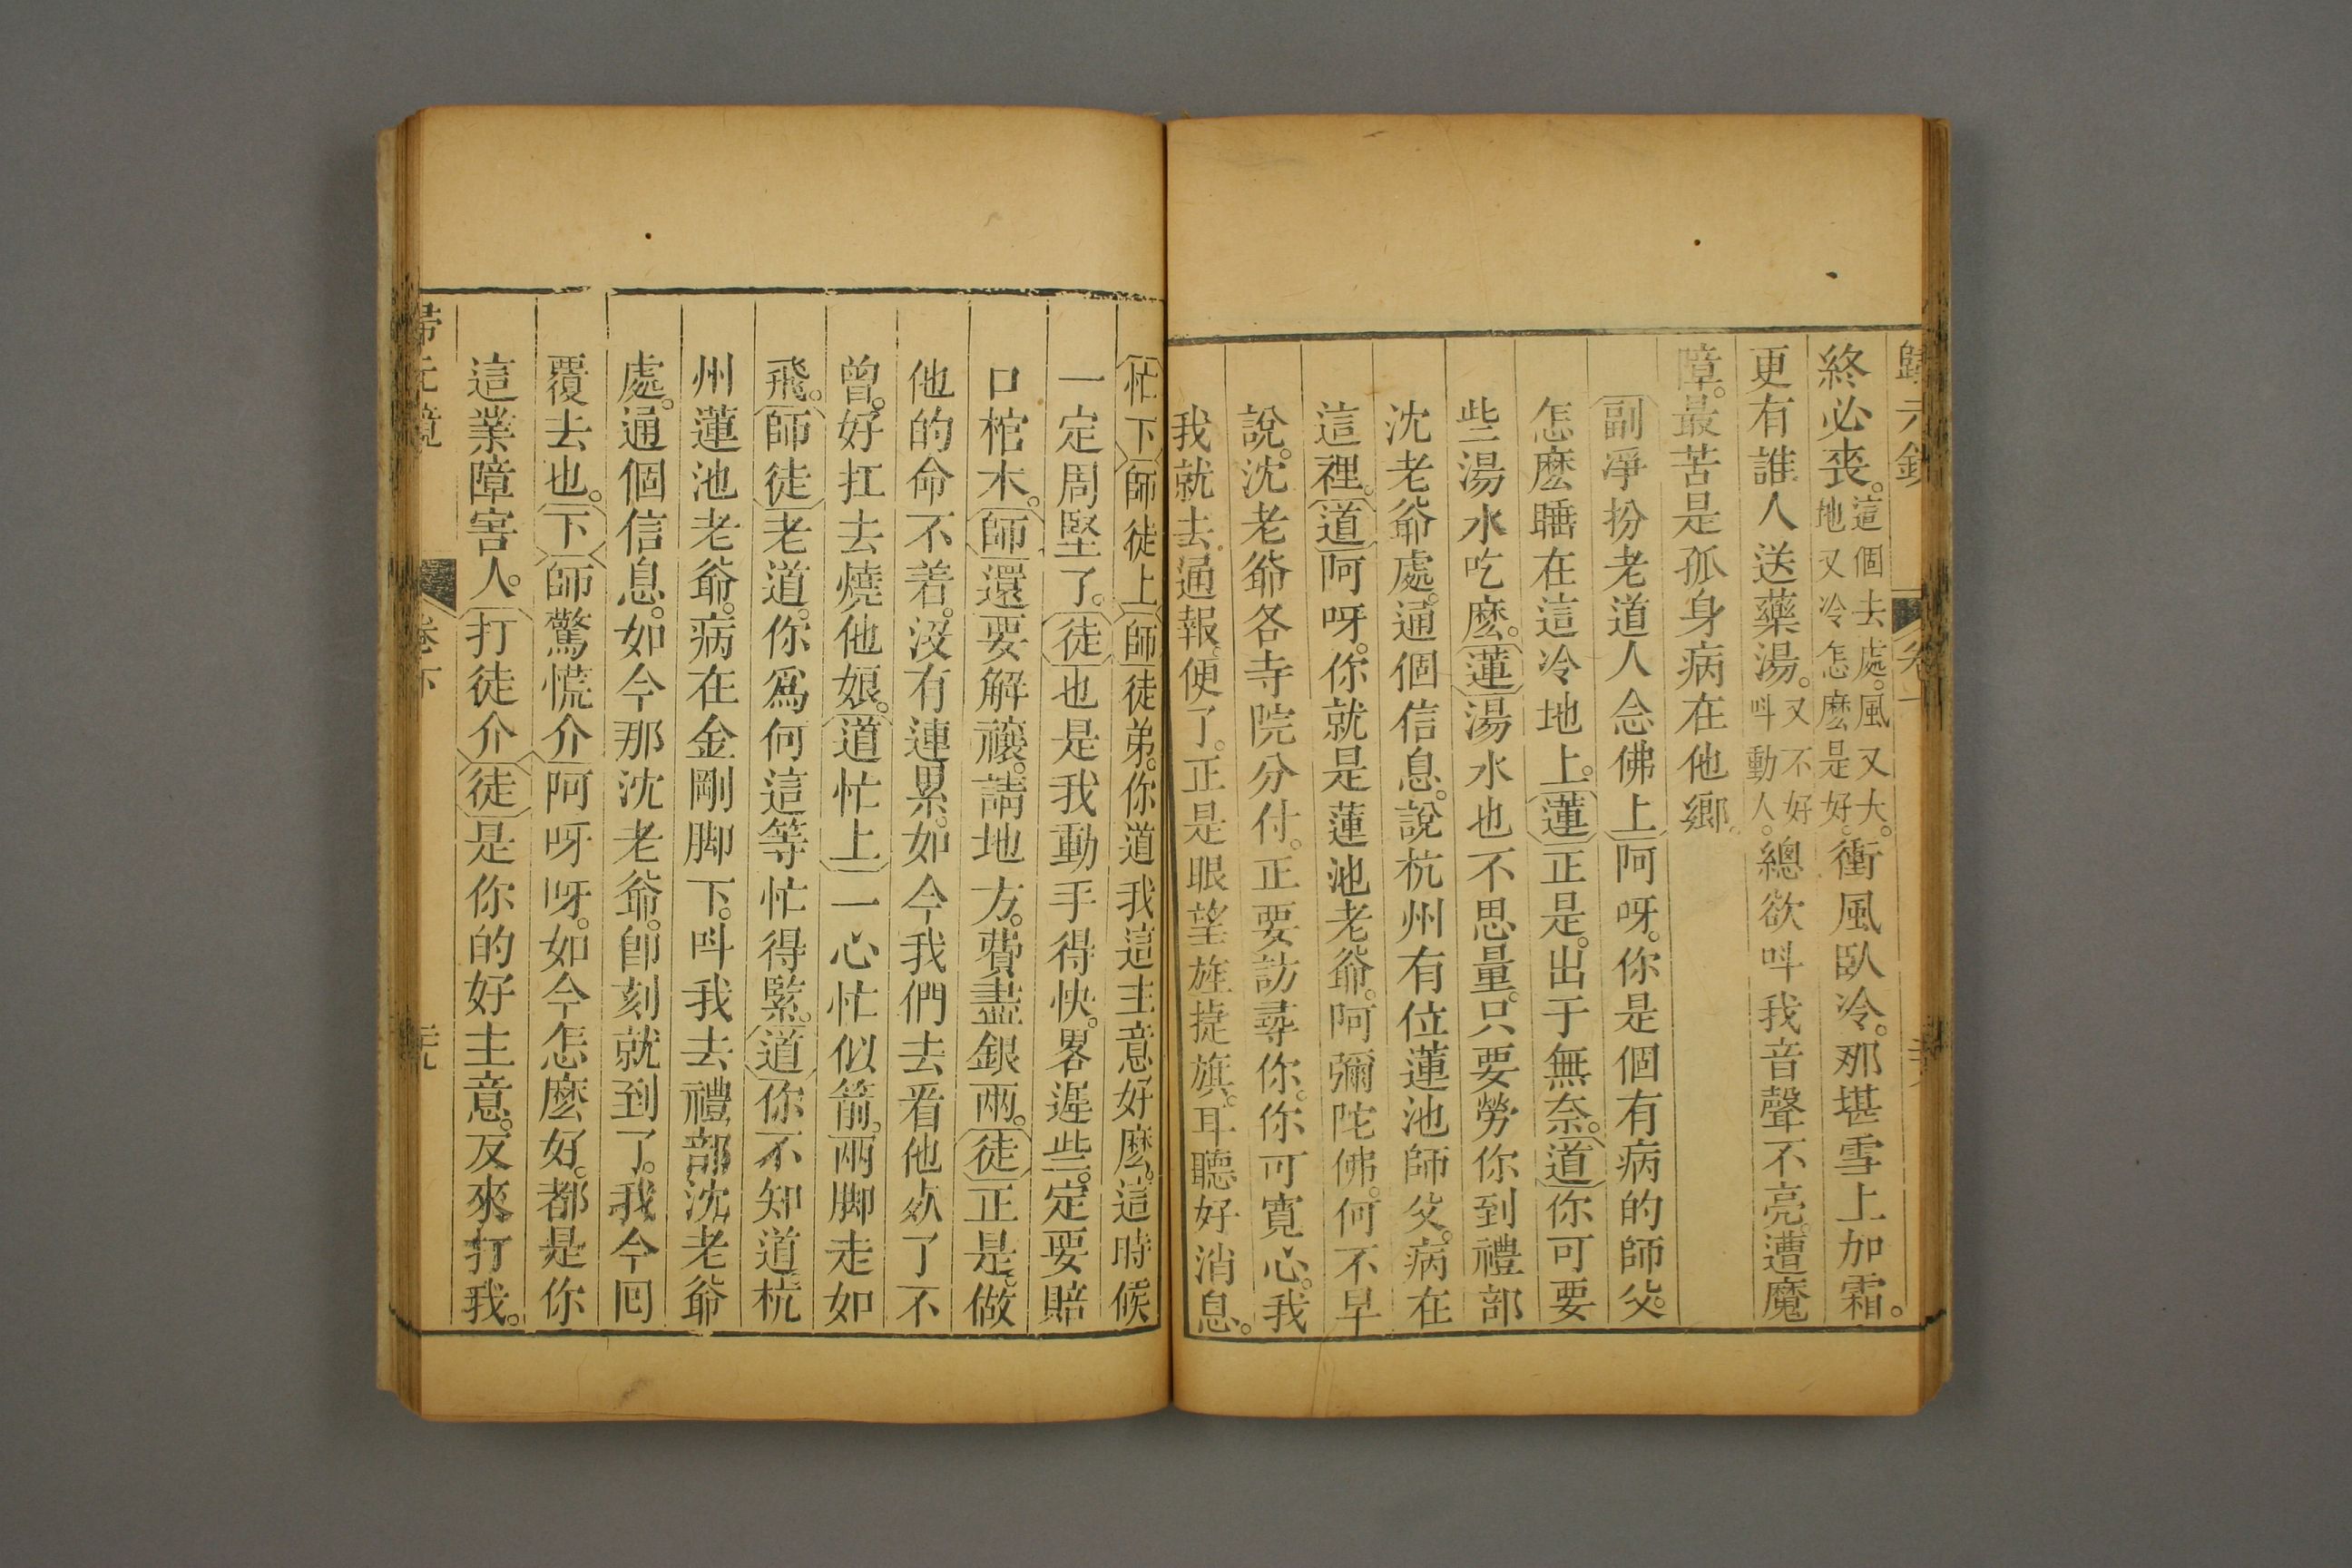 終必喪。這個去處。風又大。地又冷怎麽是好。衝風臥冷。那堪雪上加霜。
更有誰人送藥湯。又不好呌動人。總欲呌我音聲不亮。遭魔
障。最苦是孤身病在他鄉。
副凈扮老道人念佛上阿呀。你是個有病的師父。
怎麽睡在這冷地上。蓮正是。出于無奈。道你可要
些湯水吃麽。蓮湯水也不思量。只要勞你到禮部
沈老爺處。通個信息。說杭州有位蓮池師父。病在
這裡。道阿呀。你就是蓮池老爺。阿彌陀佛。何不早
說。沈老爺各寺院分付。正要訪尋你。你可寬心。我
我就去通報。便了。正是眼望旌捷旗。耳聽好消息。
忙下師徒上師徒弟。你道我這主意好麽。這時候
一定周堅了。徒也是我動手得快。畧遲些。定要賠
口棺木。師還要解禳。請地方。費盡銀兩。徒正是。做
他的命不着。沒有連累。如今我們去看他死了不
曾。好扛去燒他娘。道忙上一心忙似箭。兩脚走如
飛。師徒老道。你爲何這等忙得緊。道你不知道杭
州蓮池老爺。病在金剛脚下。呌我去禮部沈老爺
處。通個信息。如今那沈老爺。卽刻就到了。我今囘
覆去也。下師驚慌介阿呀呀。如今怎麽好。都是你
這業障害人。打徒介徒是你的好主意。反來打我。
歸元鏡
卷下